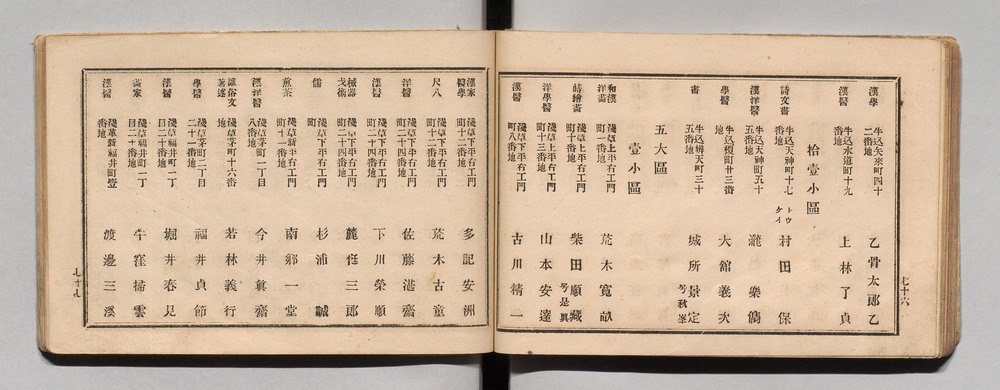 漢學 牛込矢來町四十二番地 乙骨太郎乙
漢醫 牛込水道町十九番地 上林了貞
拾壹小區
詩文書 牛込天神町十七番地 トウケイ 村田保
漢洋醫 牛込天神町五十五番地 瀧樂鶴
學醫 牛込榎町廿三番地 大館義次
書 牛込辨天町三十五番地 城所景定 号秋峯
五大區
壹小區
和漢洋畵 淺草上平右エ門町一番地 荒木寛畝
蒔繪畵 淺草上平右エ門町八番地 柴田順藏 号是眞
洋學醫 淺草上平右エ門町十三番地 山本安達
漢醫 淺草下平右エ門町八番地 古川精一
七十六
漢家醫學 淺草下平右エ門町十二番地 多記安洲
尺八 淺草下平右エ門町十二番地 荒木古童
洋醫 淺草下平右エ門町二十四番地 佐藤湛齋
漢醫 淺草下平右エ門町二十四番地 下川榮順
淺草下平右エ門町二十四番地 三郎
儒 淺草下平右エ門町 杉浦誠
煎茶 淺草新平右エ門町十一番地 南郷一堂
漢洋醫 淺草茅町一丁目八番地 今井眞齋
雅俗文著述 淺草茅町十六番地 若林義行
學醫 淺草茅町二丁目二十一番地 福井貞節
漢醫 淺草福井町一丁目二十番地 堀井春見
畵家 淺草福井町一丁目二十番地 牛窪掃雲
漢醫 淺草新福井町壹番地 渡邊三溪
七十七